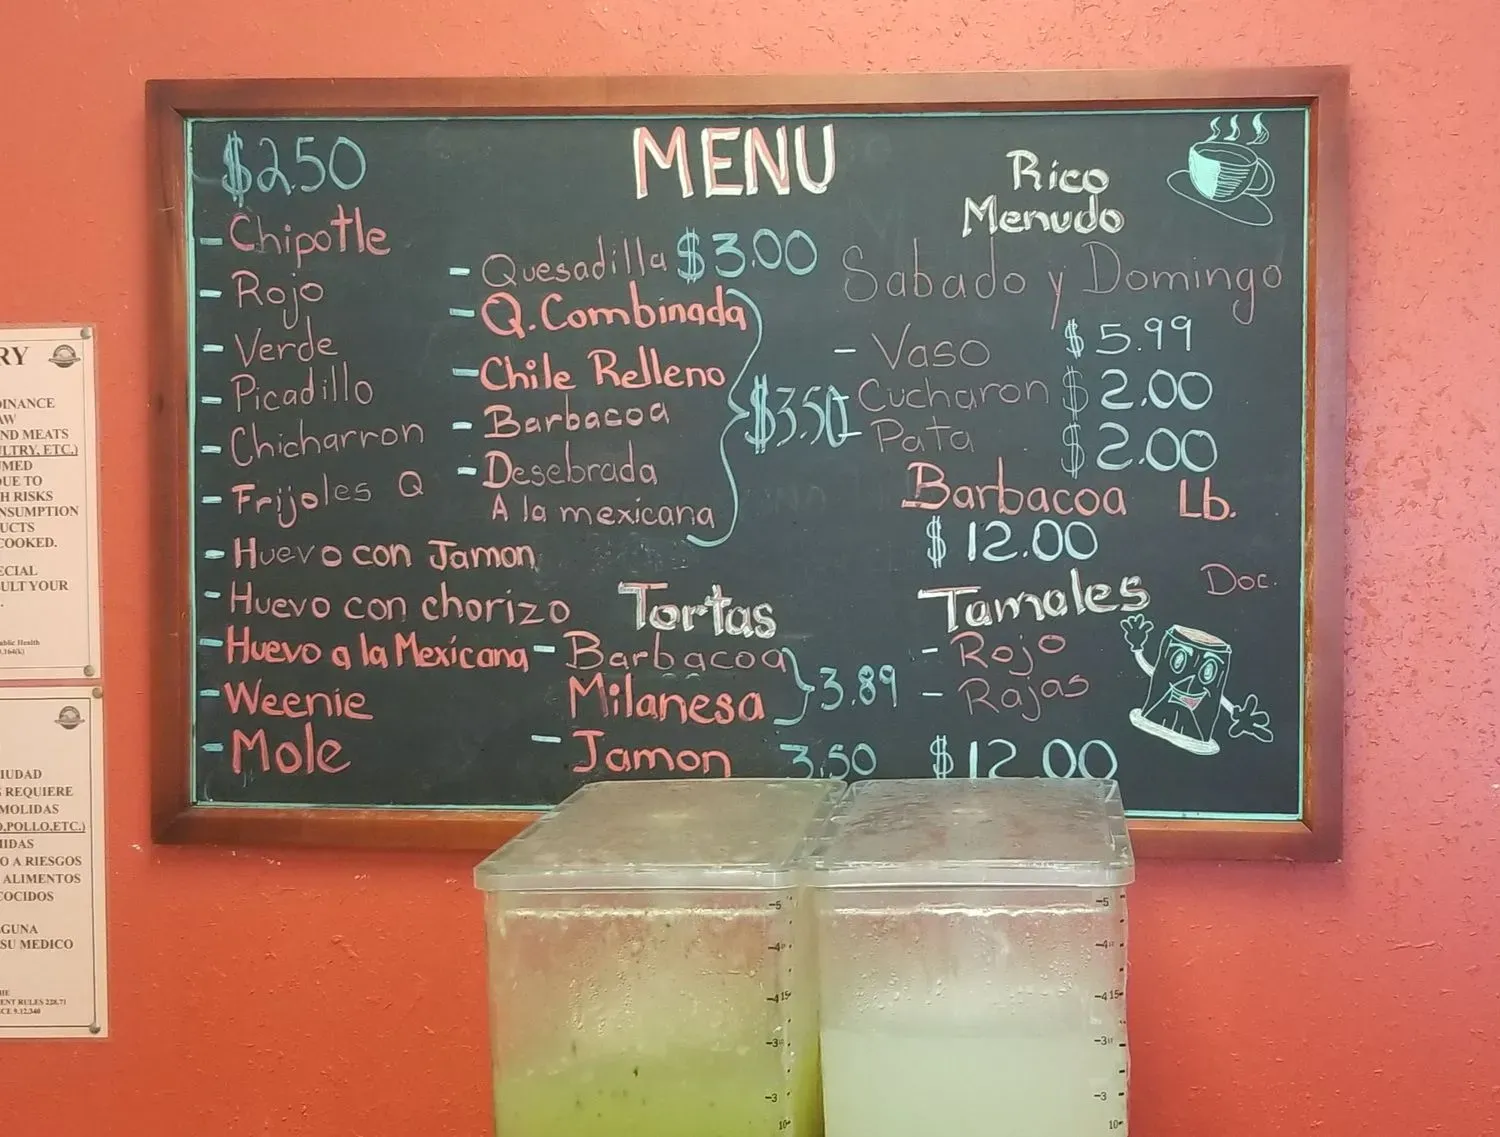 MENU
$2.50
- Chipotle
- Rojo
- Verde
- Picadillo
- Chicharron
- Frijoles Q
- Huevo con Jamon
- Huevo con chorizo
- Huevo a la Mexicana
- Weenie
- Mole
- Quesadilla $3.00
- Q. Combinada
- Chile Relleno
- Barbacoa
- Desebrada
A la mexicana
$3.50
Tortas
- Barbacoa
Milanesa
3.89
- Jamon 3.50
Rico
Menudo
Sabado y Domingo
- Vaso $5.99
- Cucharon $2.00
- Pata $2.00
Barbacoa Lb.
$12.00
Tamales Doc.
- Rojo
- Rajas
$12.00
RY
DINANCE
AW
ND MEATS
ULTRY, ETC.)
UMED
DUE TO
H RISKS
NSUMPTION
UCTS
COOKED.
ECIAL
ULT YOUR
ublic Health
IUDAD
REQUIERE
MOLIDAS
O,POLLO,ETC.)
IIDAS
O A RIESGOS
ALIMENTOS
COCIDOS
GUNA
SU MEDICO
HE
ENT RULES 228.71
CE 9.12.340
5
4
4 15
3
3
10
5
4
4 15
3
3
10